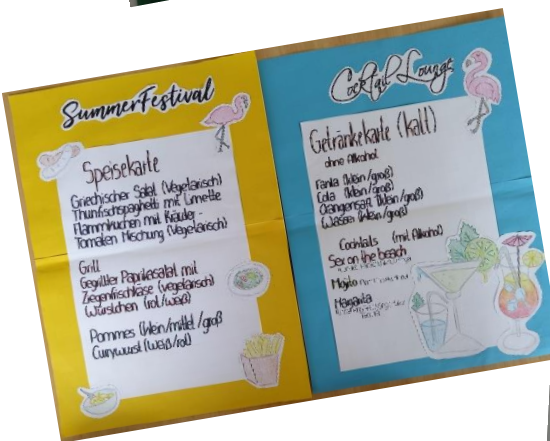 SummerFestival
Speisekarte
Griechischer Salat (Vegetarisch)
Thunfischspaghetti mit Limette
Flammkuchen mit Kräuter -
Tomaten Mischung (Vegetarisch)
Grill
Gegrillter Paprikasalat mit
Ziegenfischkäse (vegetarisch)
Würstchen (rot/weiß)
Pommes (klein/mittel/groß
Currywurst (weiß/rot)
Cocktail Lounge
Getränkekarte (kalt)
ohne Alkohol
Fanta (klein/groß)
Cola (klein/groß)
Orangensaft (klein/groß)
Wasser (klein/groß)
Cocktails (mit Alkohol)
Sex on the beach
Mojito
Margarita